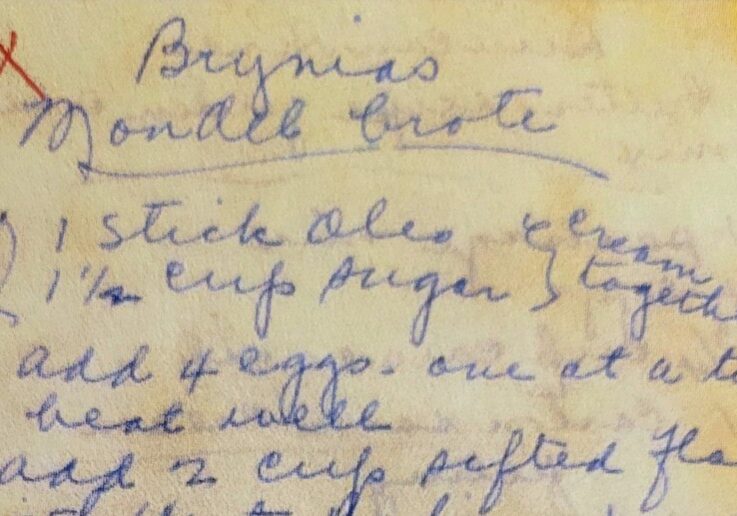 Brynias
Mondel brote
1 stick Oleo } cream
1 1/2 cup sugar } together
add 4 eggs - one at a
beat well
add 2 cup sifted